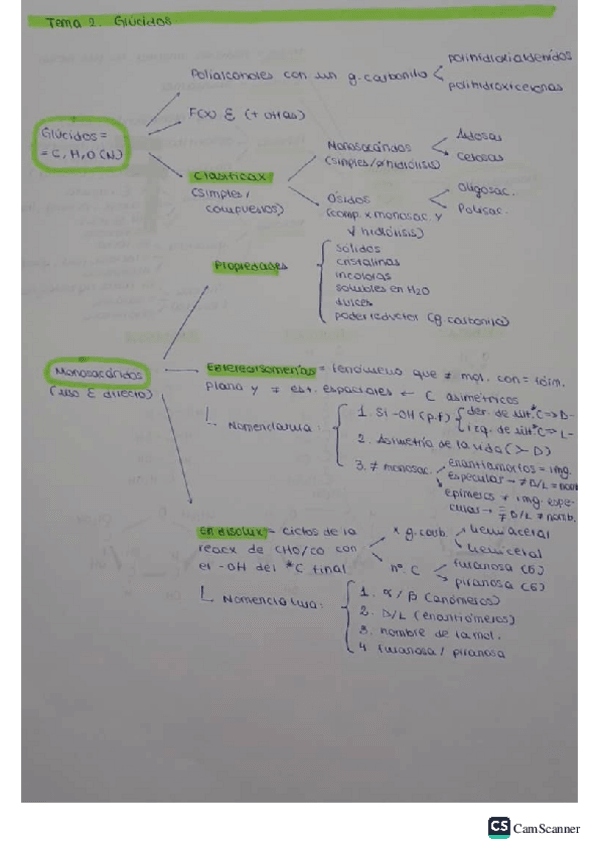 Tema 2. Glúcidos.
Polialcoholes con un g. carbonilo
polihidroxialdehídos
polihidroxicetonas
Fxx E (+ grasas)
Glúcidos =
= C, H, O (N)
Clasificax
(simples/
compuestos)
Monosacáridos
(simples/o hidrólisis)
Aldosas
Cetosas
Ósidos
(comp. x monosac. y
y hidrólisis)
Oligosac.
Polisac.
Propiedades
sólidos
cristalinas
incoloras
solubles en H2O
dulces
poder reductor (g. carbonilo)
Monosacáridos
(uso E directo)
Estereoisomerías = fenómeno que ≠ mol. con = fórm.
plana y ≠ est. espaciales ← C asimétricos
Nomenclatura:
1. Si -OH (p.f)
der. de últ. *C => D-
izq. de últ. *C => L-
2. Asimetría de la vida (> D)
3. ≠ monosac.
enantiomorfos = img.
especulas → ≠ D/L = nomb.
epímeros ≠ img. espe-
culas → = D/L ≠ nomb.
En disolux = ciclos de la
reacx de CHO/CO con
el -OH del *C final
x g. carb.
hemiacetal
hemicetal
nº C
furanosa (5)
piranosa (6)
Nomenclatura:
1. α / β (anómeros)
2. D/L (enantiómeros)
3. nombre de la mol.
4. furanosa / piranosa
CS CamScanner